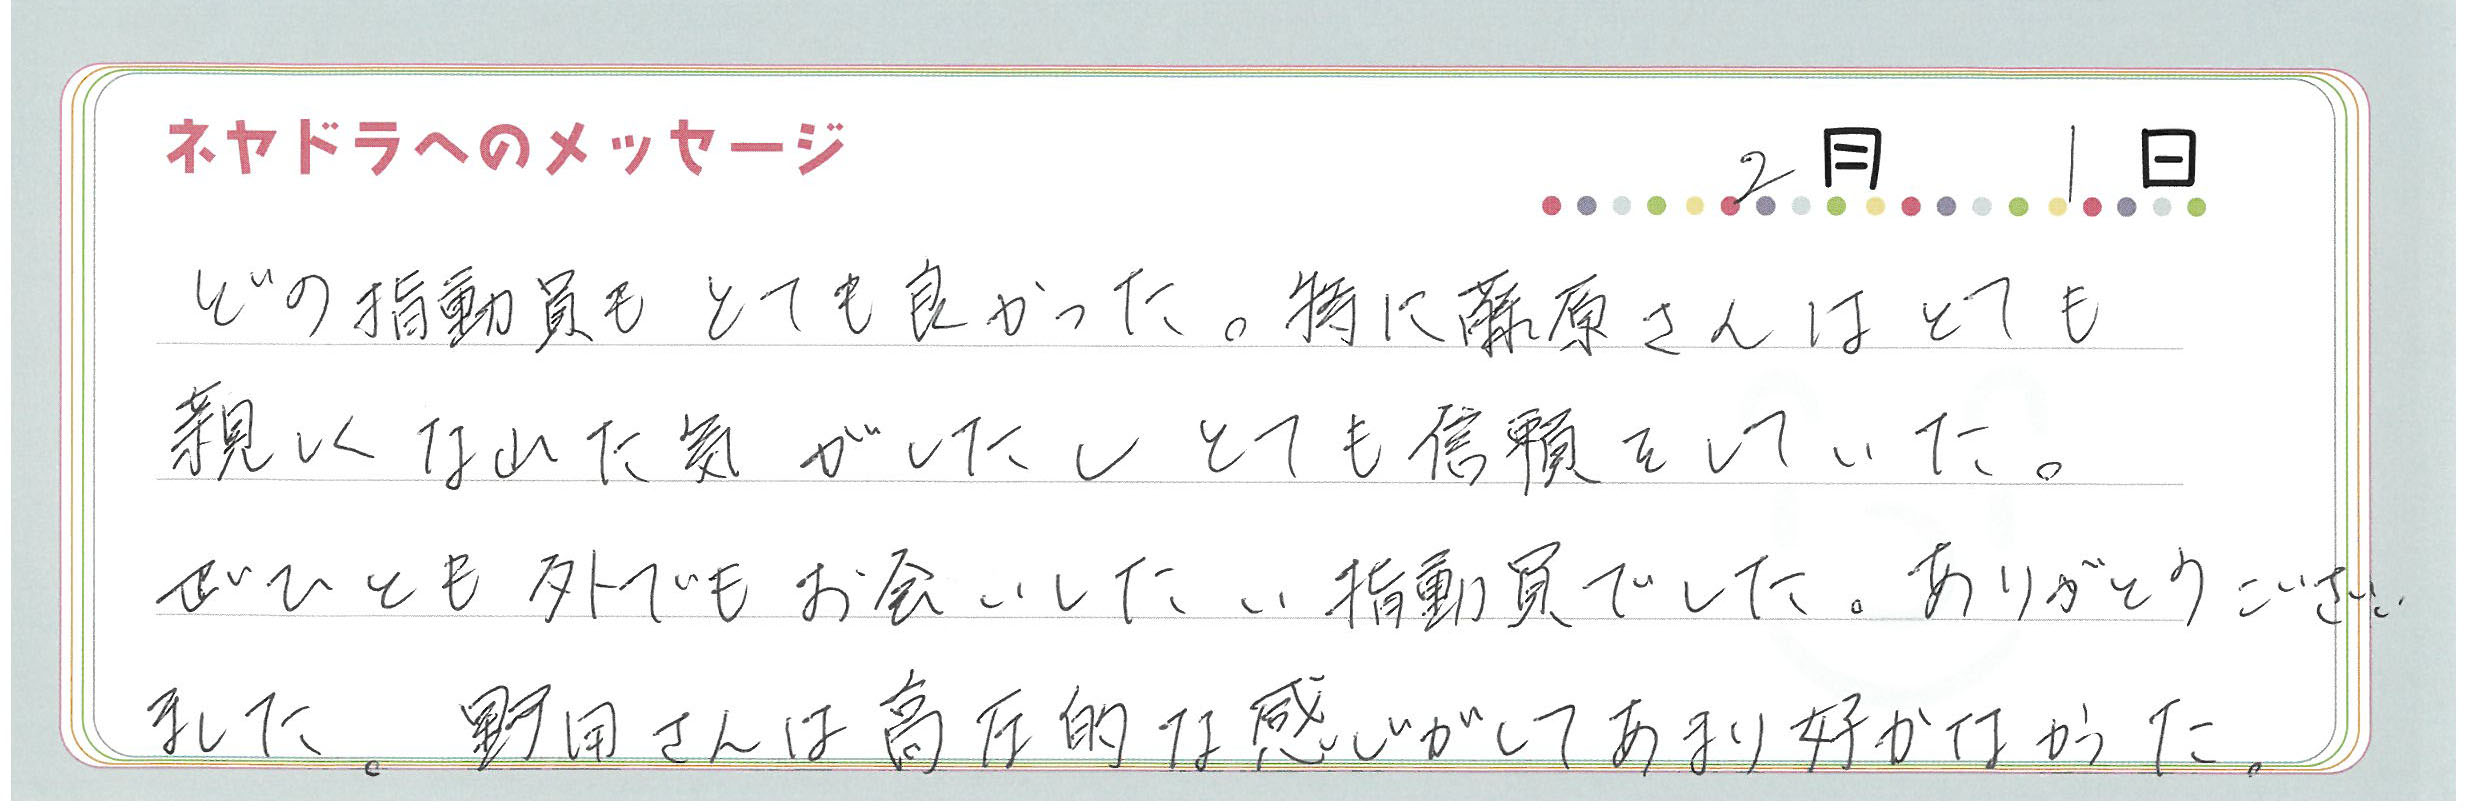 ネヤドラへのメッセージ
2月 1日
どの指動員もとても良かった。特に藤原さんはとても
親しくなれた気がしたしとても信頼をしていた。
ぜひとも外でもお会いしたい指動員でした。ありがとうございい
ました。野田さんは高圧的な感じがしてあまり好かなかった。